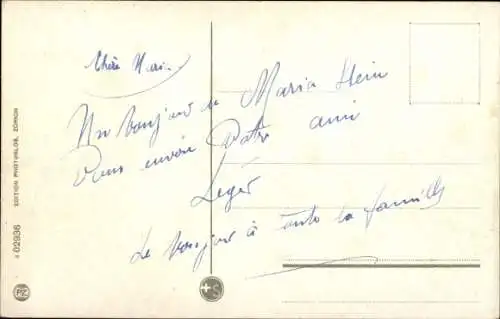 Chère Marie
Un bonjour de Maria Stein
Vous envoie Votre ami
Léger
Le bonjour à toute la famille
EDITION PHOTOGLOB, ZÜRICH
02936
PZ
S